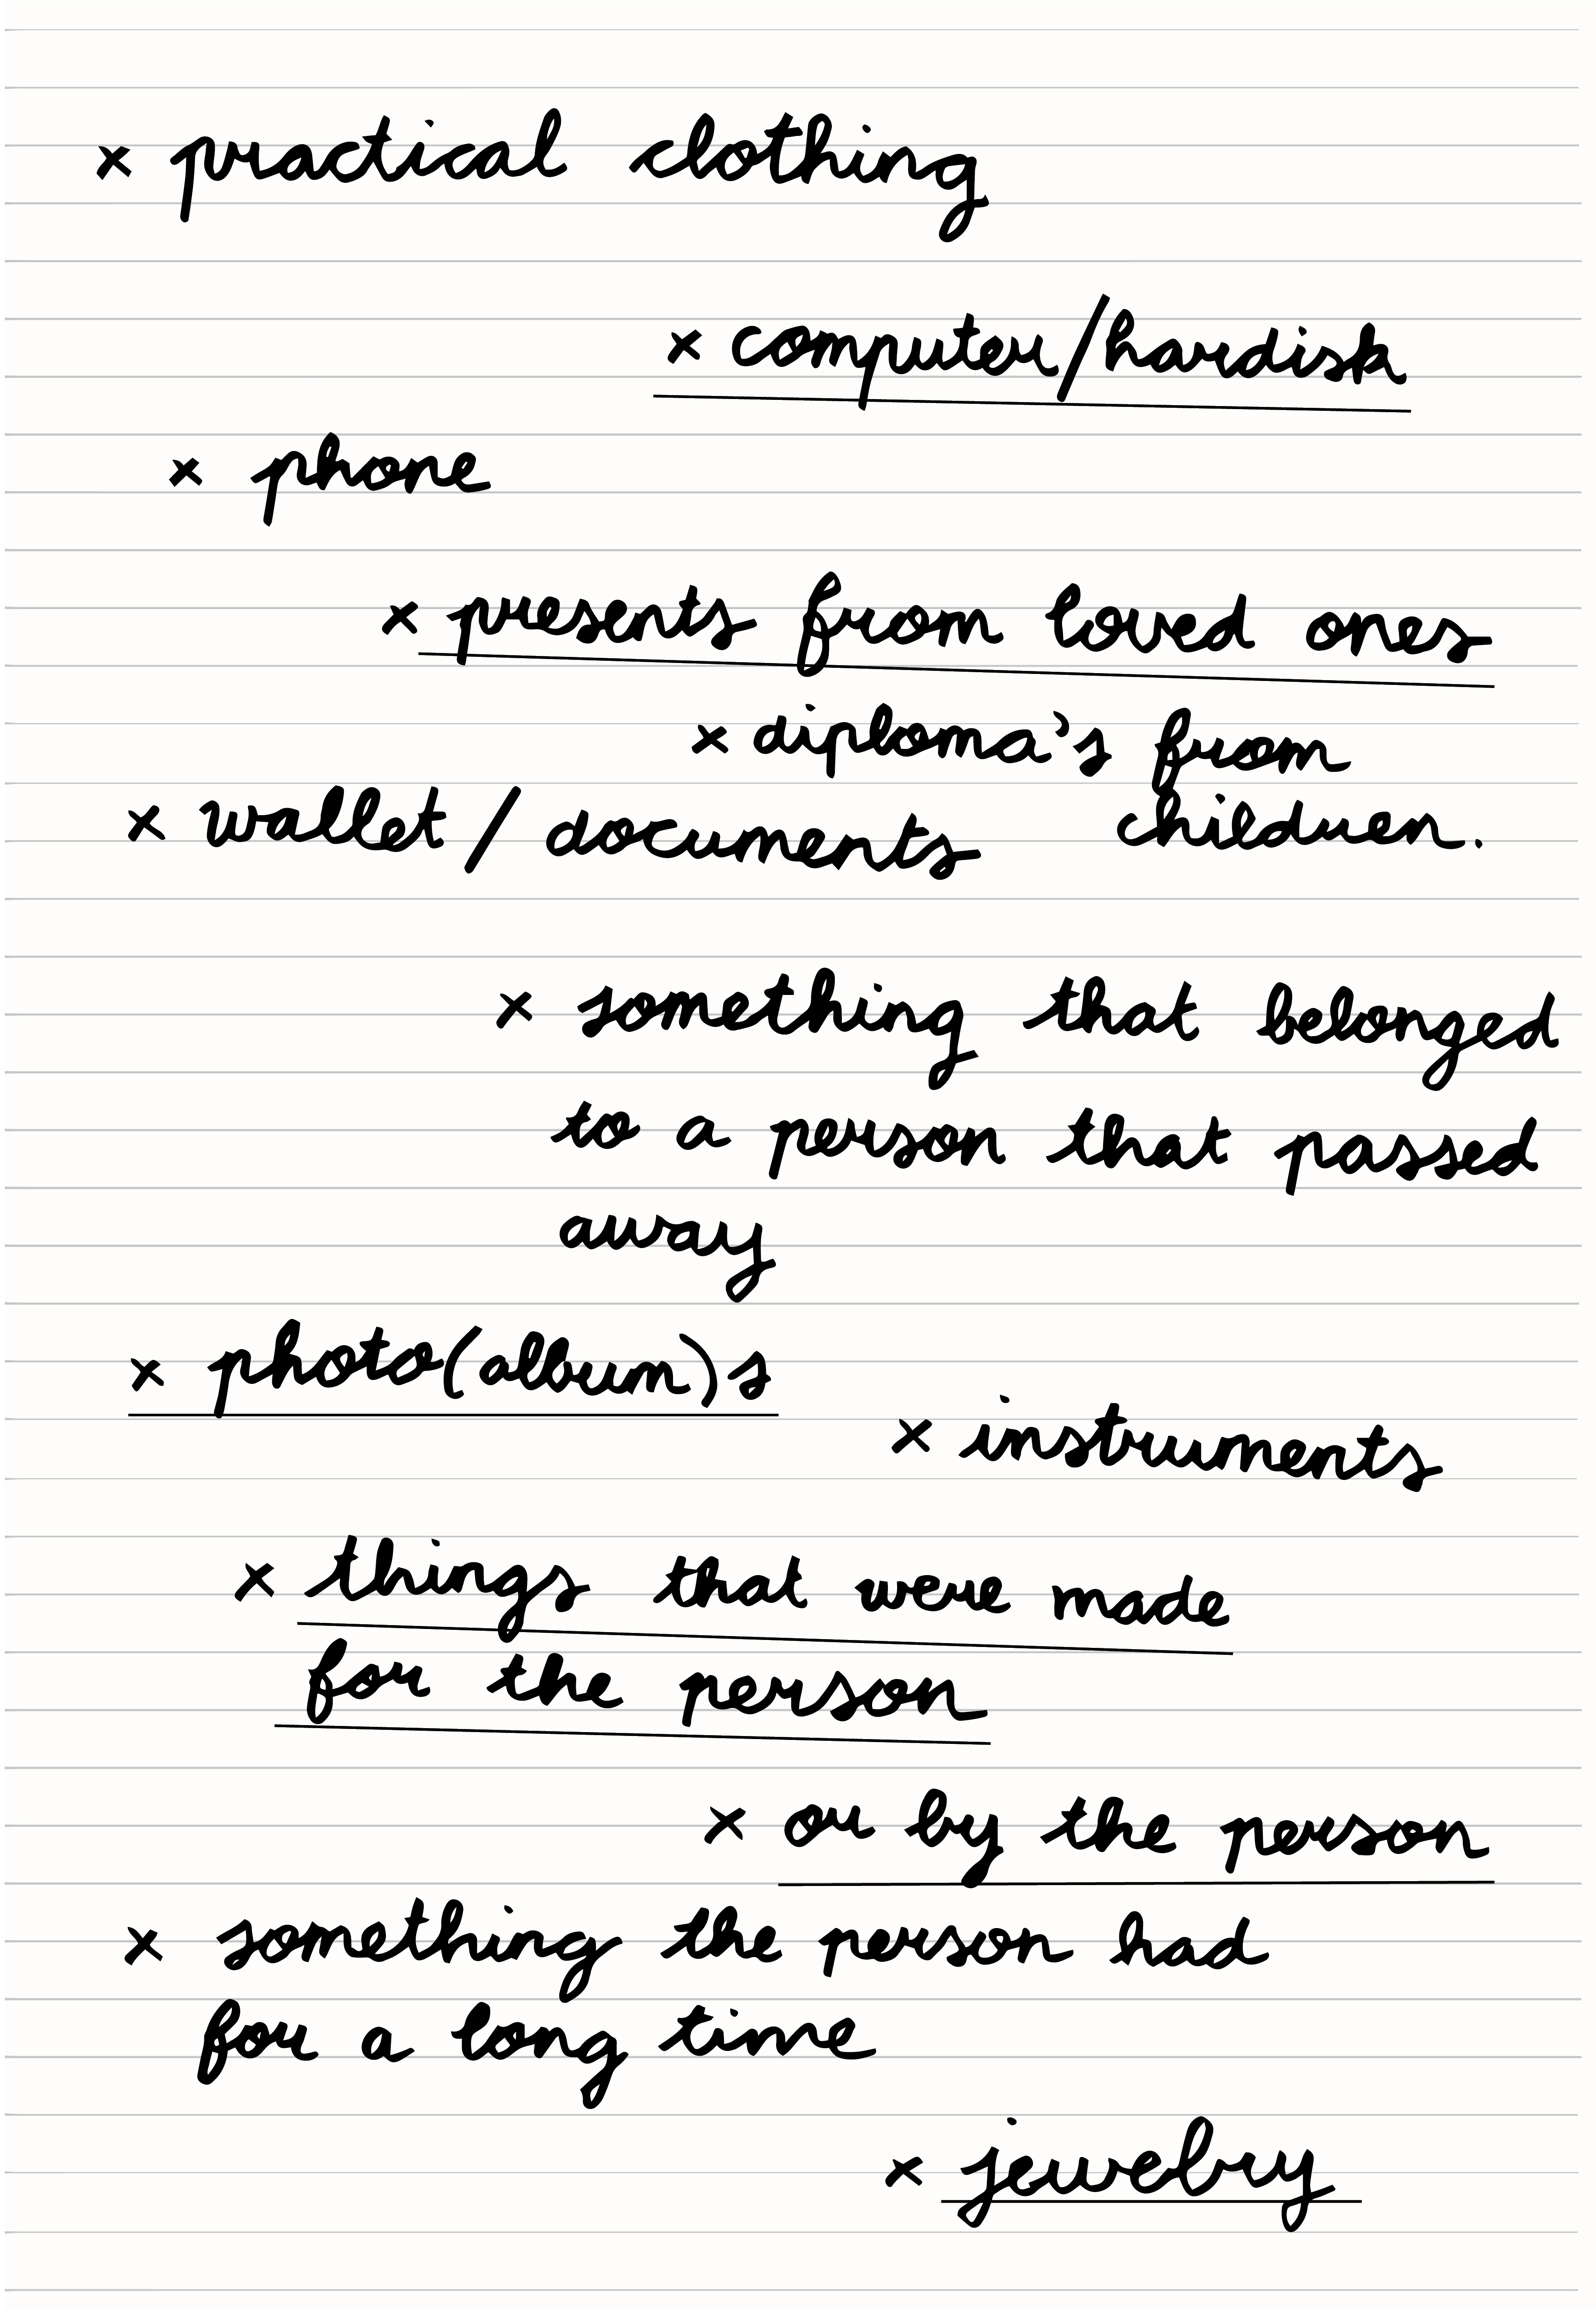 x practical clothing
x computer/hardisk
x phone
x presents from loved ones
x diploma's from
children.
x wallet / documents
x something that belonged
to a person that passed
away
x photo(album)s
x instruments
x things that were made
for the person
x or by the person
x something the person had
for a long time
x jewelry